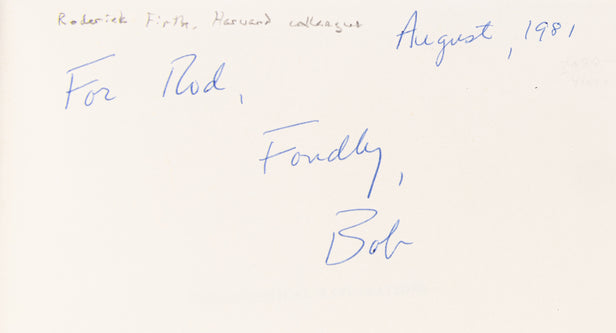 Roderick Firth, Harvard colleague
August, 1981
For Rod,
Fondly,
Bob